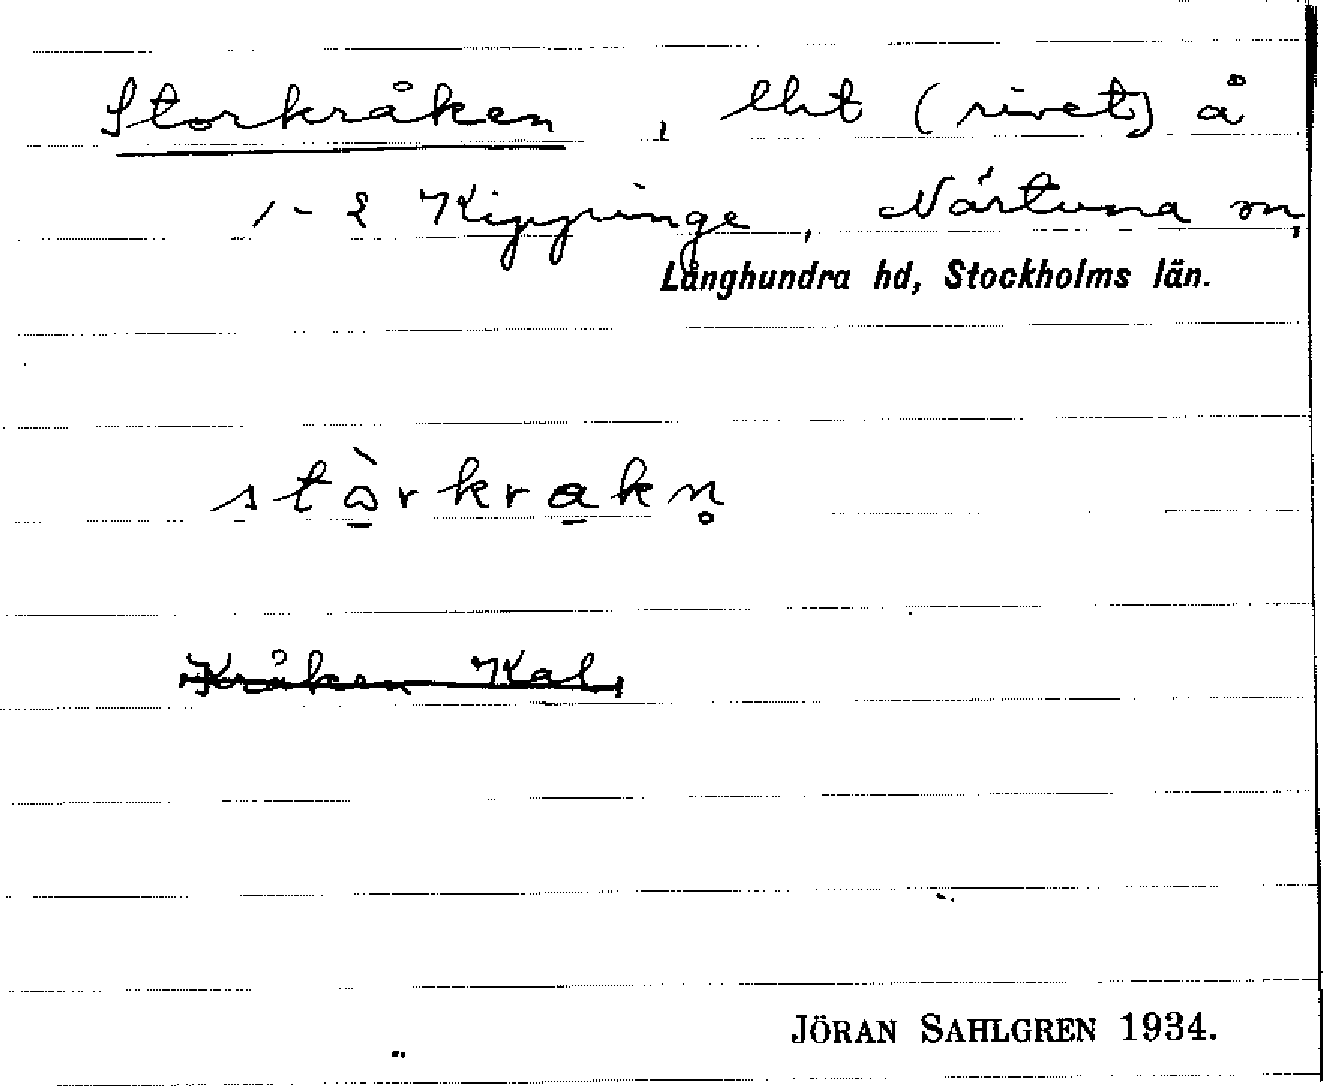 Storkråken, lht (rivet) å
1-2 Kippinge, Närtuna sn,
Långhundra hd, Stockholms län.
stò̠rkra̠kn̥
Kråken Kal,
JÖRAN SAHLGREN 1934.